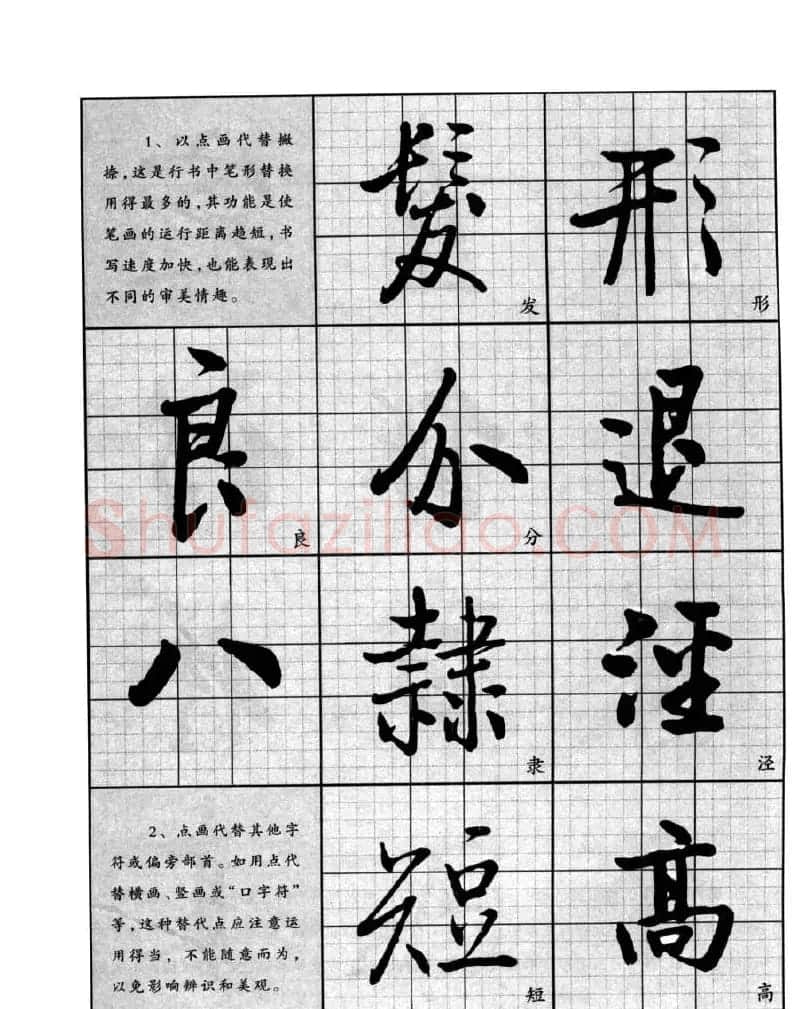 1、以点画代替撇
捺，这是行书中笔形替换
用得最多的，其功能是使
笔画的运行距离趋短，书
写速度加快，也能表现出
不同的审美情趣。
髮
发
形
形
良
良
分
分
退
八
隸
隶
淫
泾
2、点画代替其他字
符或偏旁部首。如用点代
替横画、竖画或“口字符”
等，这种替代点应注意运
用得当，不能随意而为，
以免影响辨识和美观。
短
短
高
高
Shufaziliao.COM